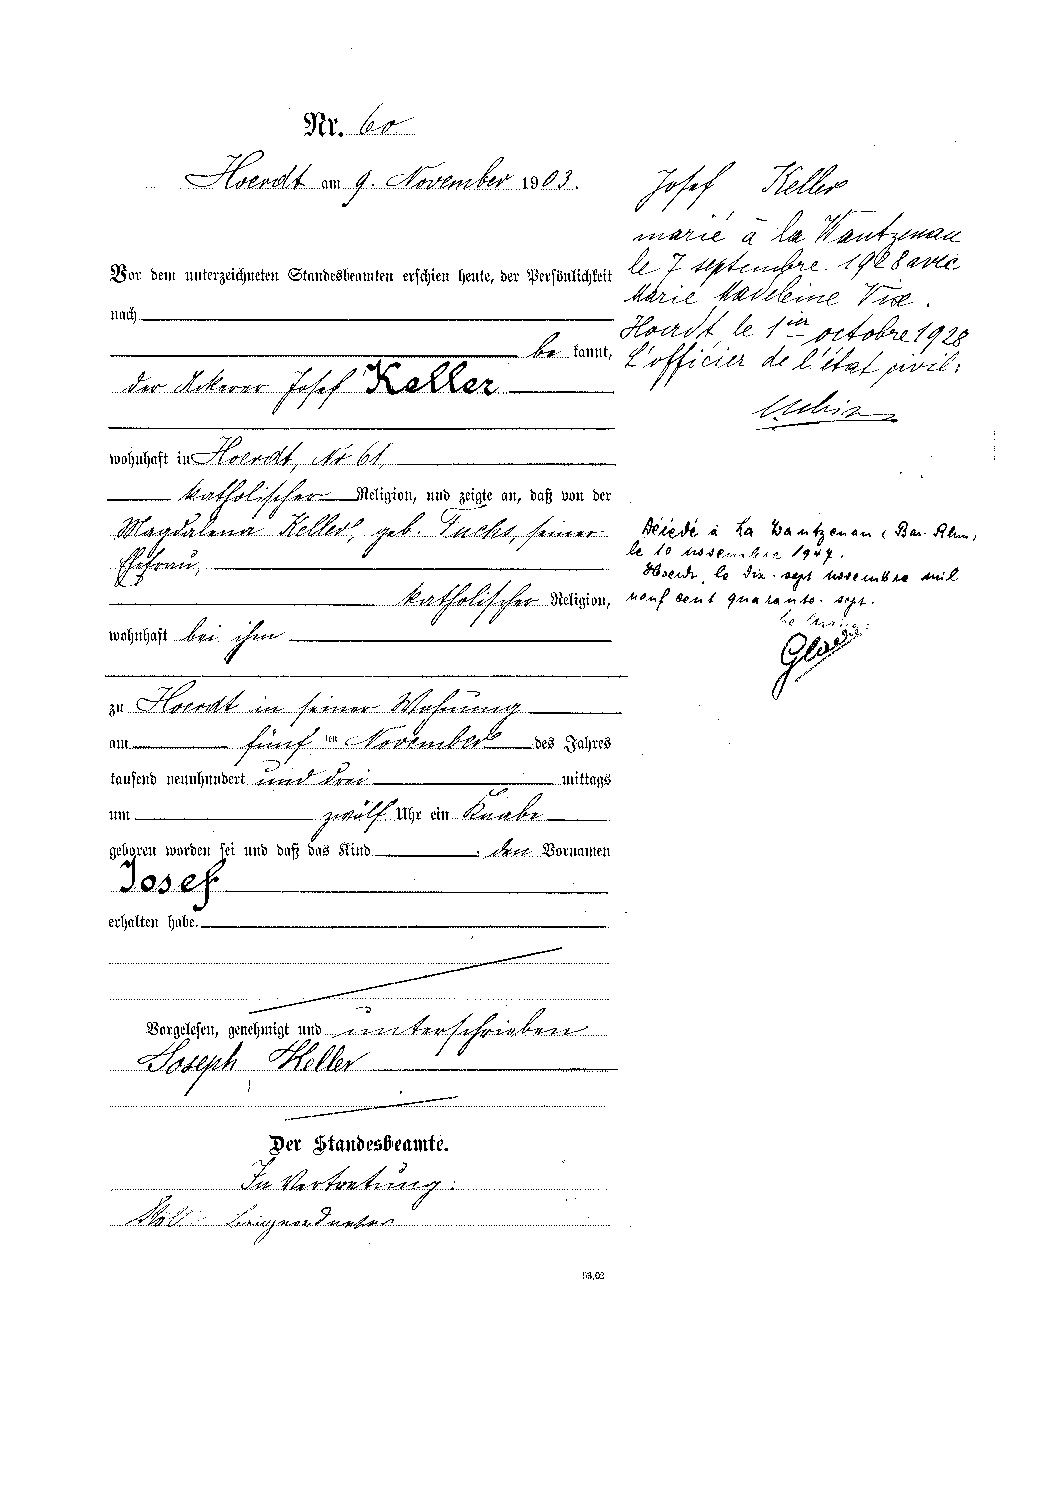 Nr. 60
Hoerdt am 9. November 1903.
Vor dem unterzeichneten Standesbeamten erschien heute, der Persönlichkeit
nach
be kannt,
der Ackerer Josef Keller
wohnhaft in Hoerdt, Nr 61,
katholischer Religion, und zeigte an, daß von der
Magdalena Keller, geb. Fuchs, seiner
Ehefrau,
katholischer Religion,
wohnhaft bei ihm
zu Hoerdt in seiner Wohnung
am fünf ten November des Jahres
tausend neunhundert und drei mittags
um zwölf Uhr ein Knabe
geboren worden sei und daß das Kind den Vornamen
Josef
erhalten habe.
Vorgelesen, genehmigt und unterschrieben
Joseph Keller
Der Standesbeamte.
In Vertretung:
Beigeordneter
Josef Keller
marié à la Wantzenau
le 7 septembre 1928 avec
Marie Madeleine Vix.
Hoerdt le 1ier octobre 1928
L'officier de l'état civil:
Décédé à La Wantzenau (Bas-Rhin)
le 10 novembre 1947.
Hoerdt, le dix-sept novembre mil
neuf cent quarante-sept.